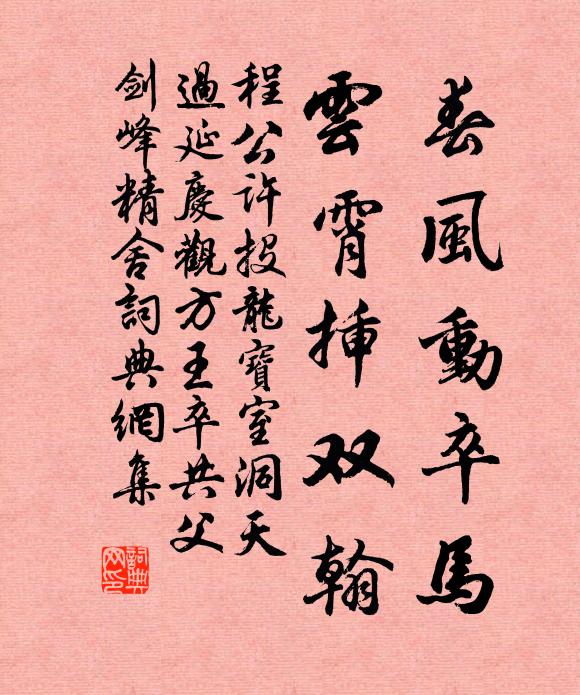 春風動卒馬
雲霄挿双翰
程公许投龍寶室洞天
過延慶觀方王卒共父
剑峰精舍詞典網集
詞典网印